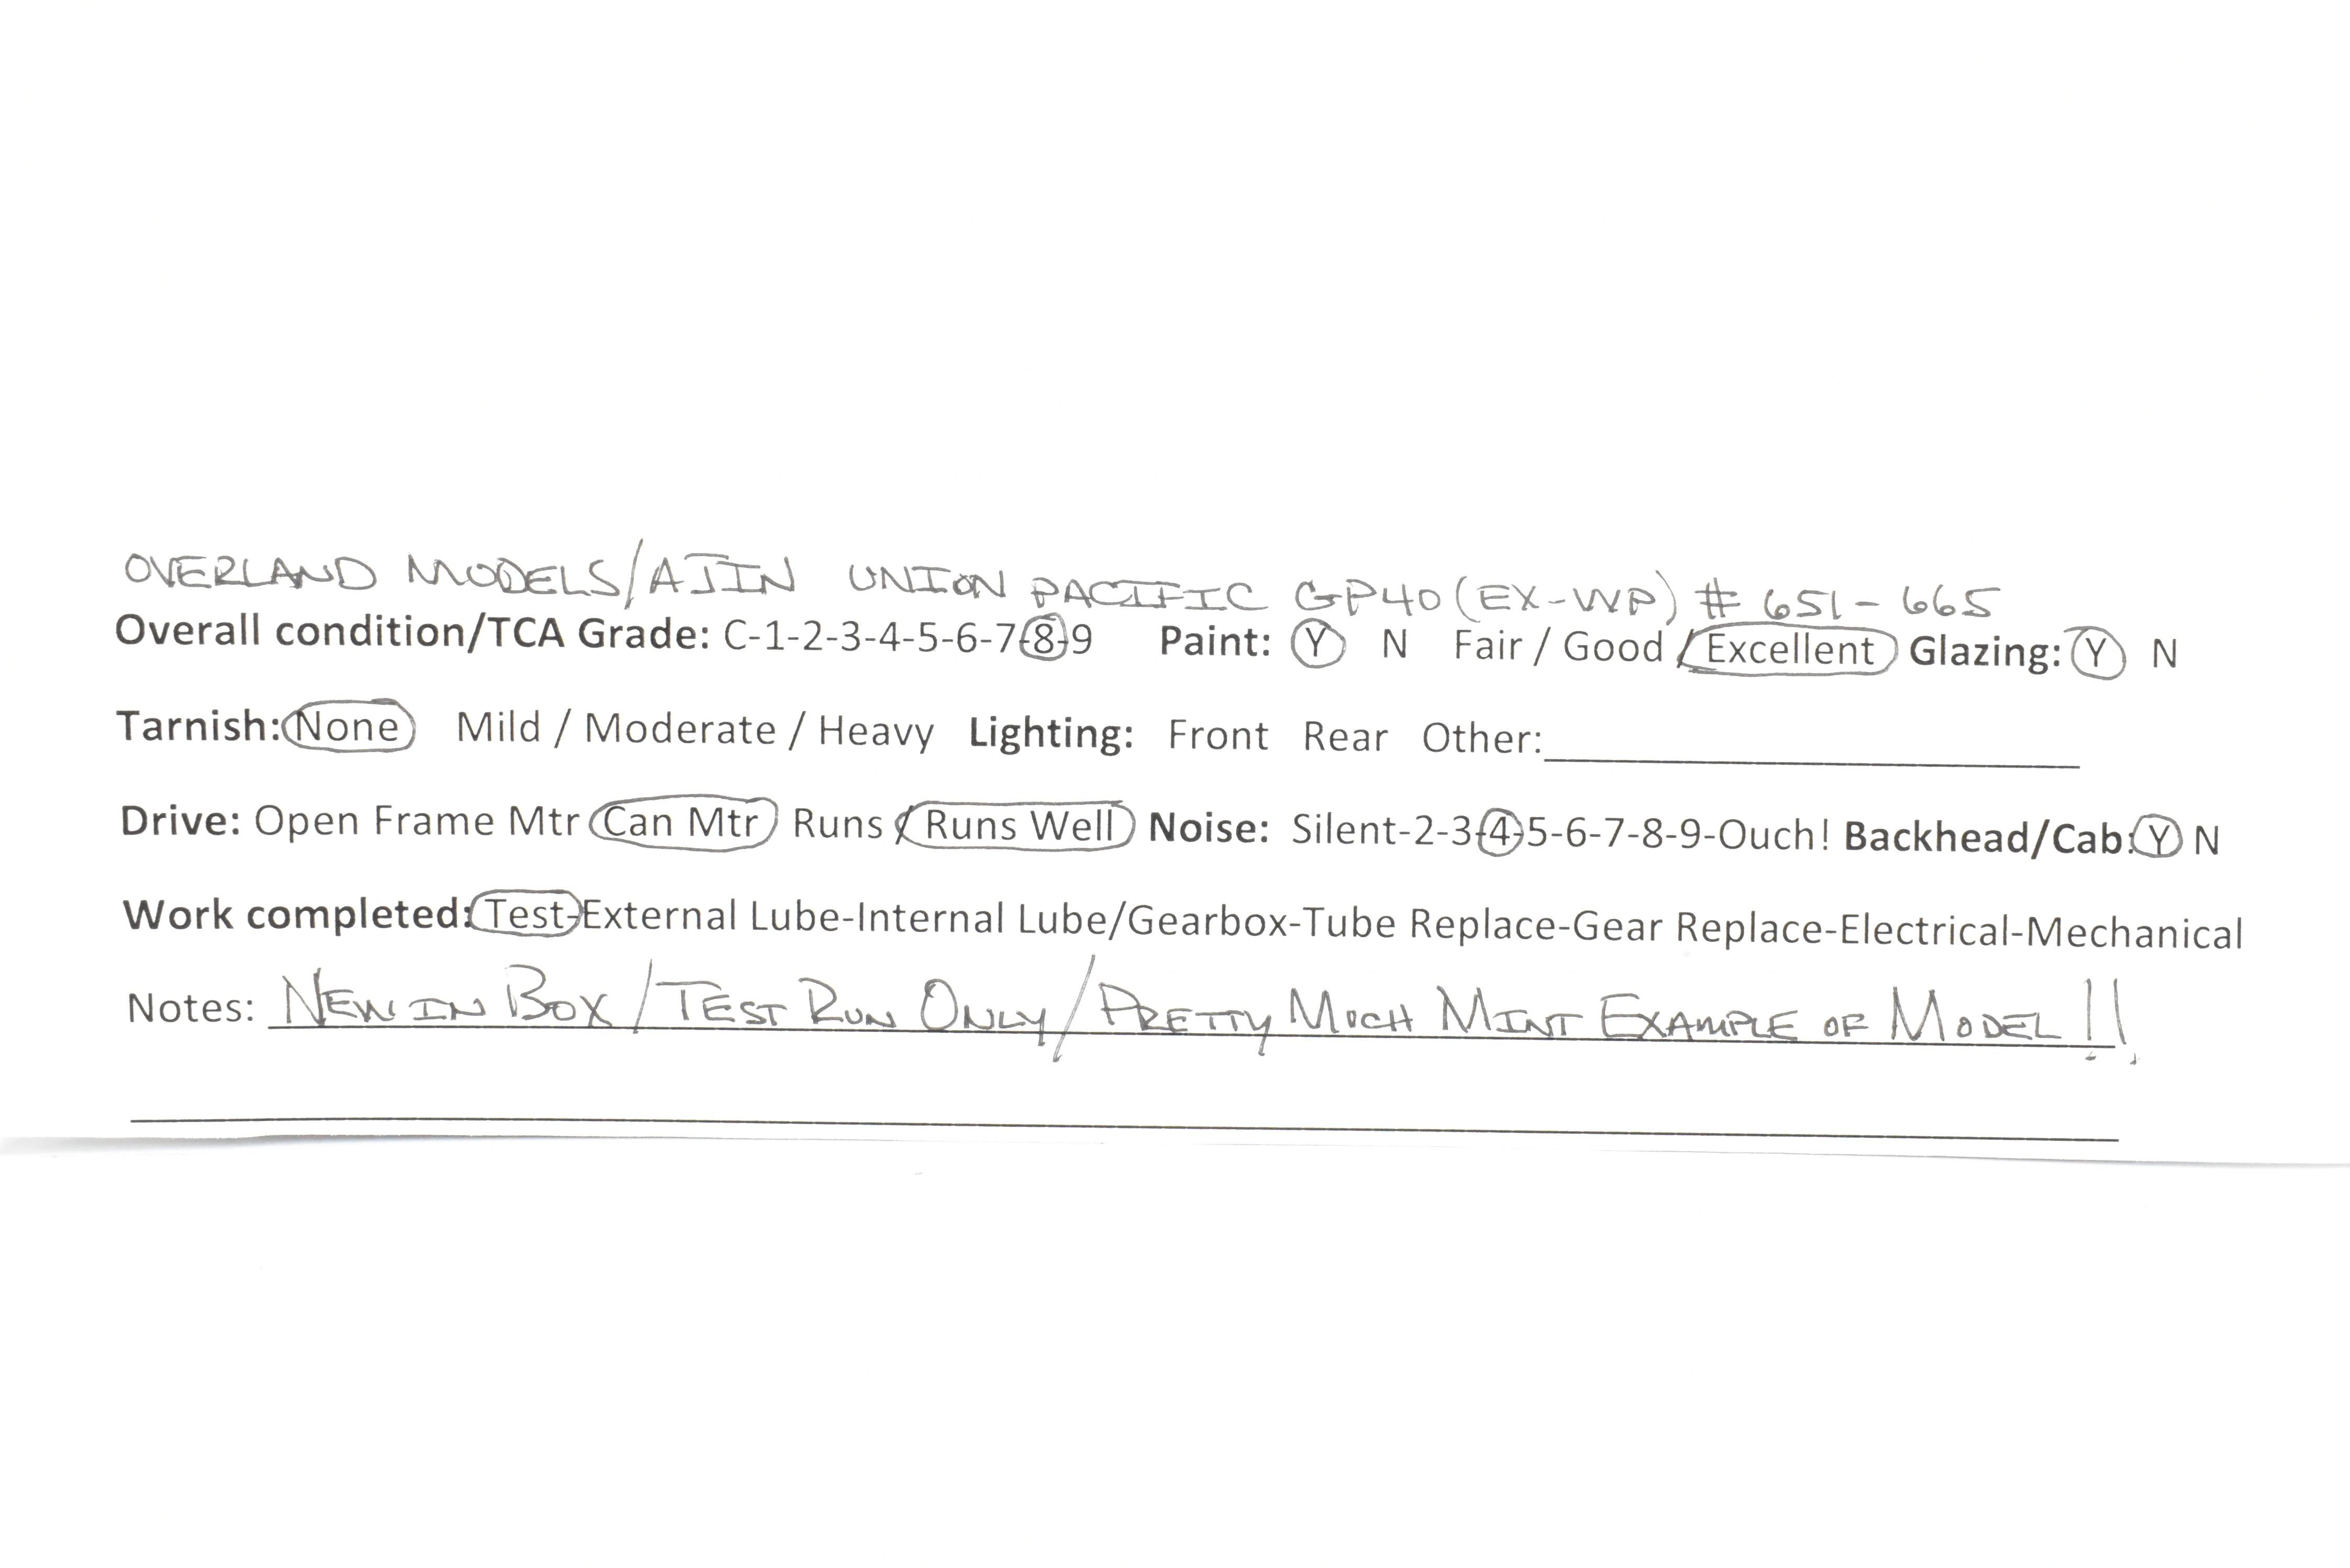 OVERLAND MODELS/AJIN UNION PACIFIC GP40 (EX-WP) # 651-665
Overall condition/TCA Grade: C-1-2-3-4-5-6-7-8-9 Paint: Y N Fair / Good / Excellent Glazing: Y N
Tarnish: None Mild / Moderate / Heavy Lighting: Front Rear Other:
Drive: Open Frame Mtr Can Mtr Runs / Runs Well Noise: Silent-2-3-4-5-6-7-8-9-Ouch! Backhead/Cab: Y N
Work completed: Test-External Lube-Internal Lube/Gearbox-Tube Replace-Gear Replace-Electrical-Mechanical
Notes: NEW IN BOX / TEST RUN ONLY / PRETTY MUCH MINT EXAMPLE OF MODEL !!